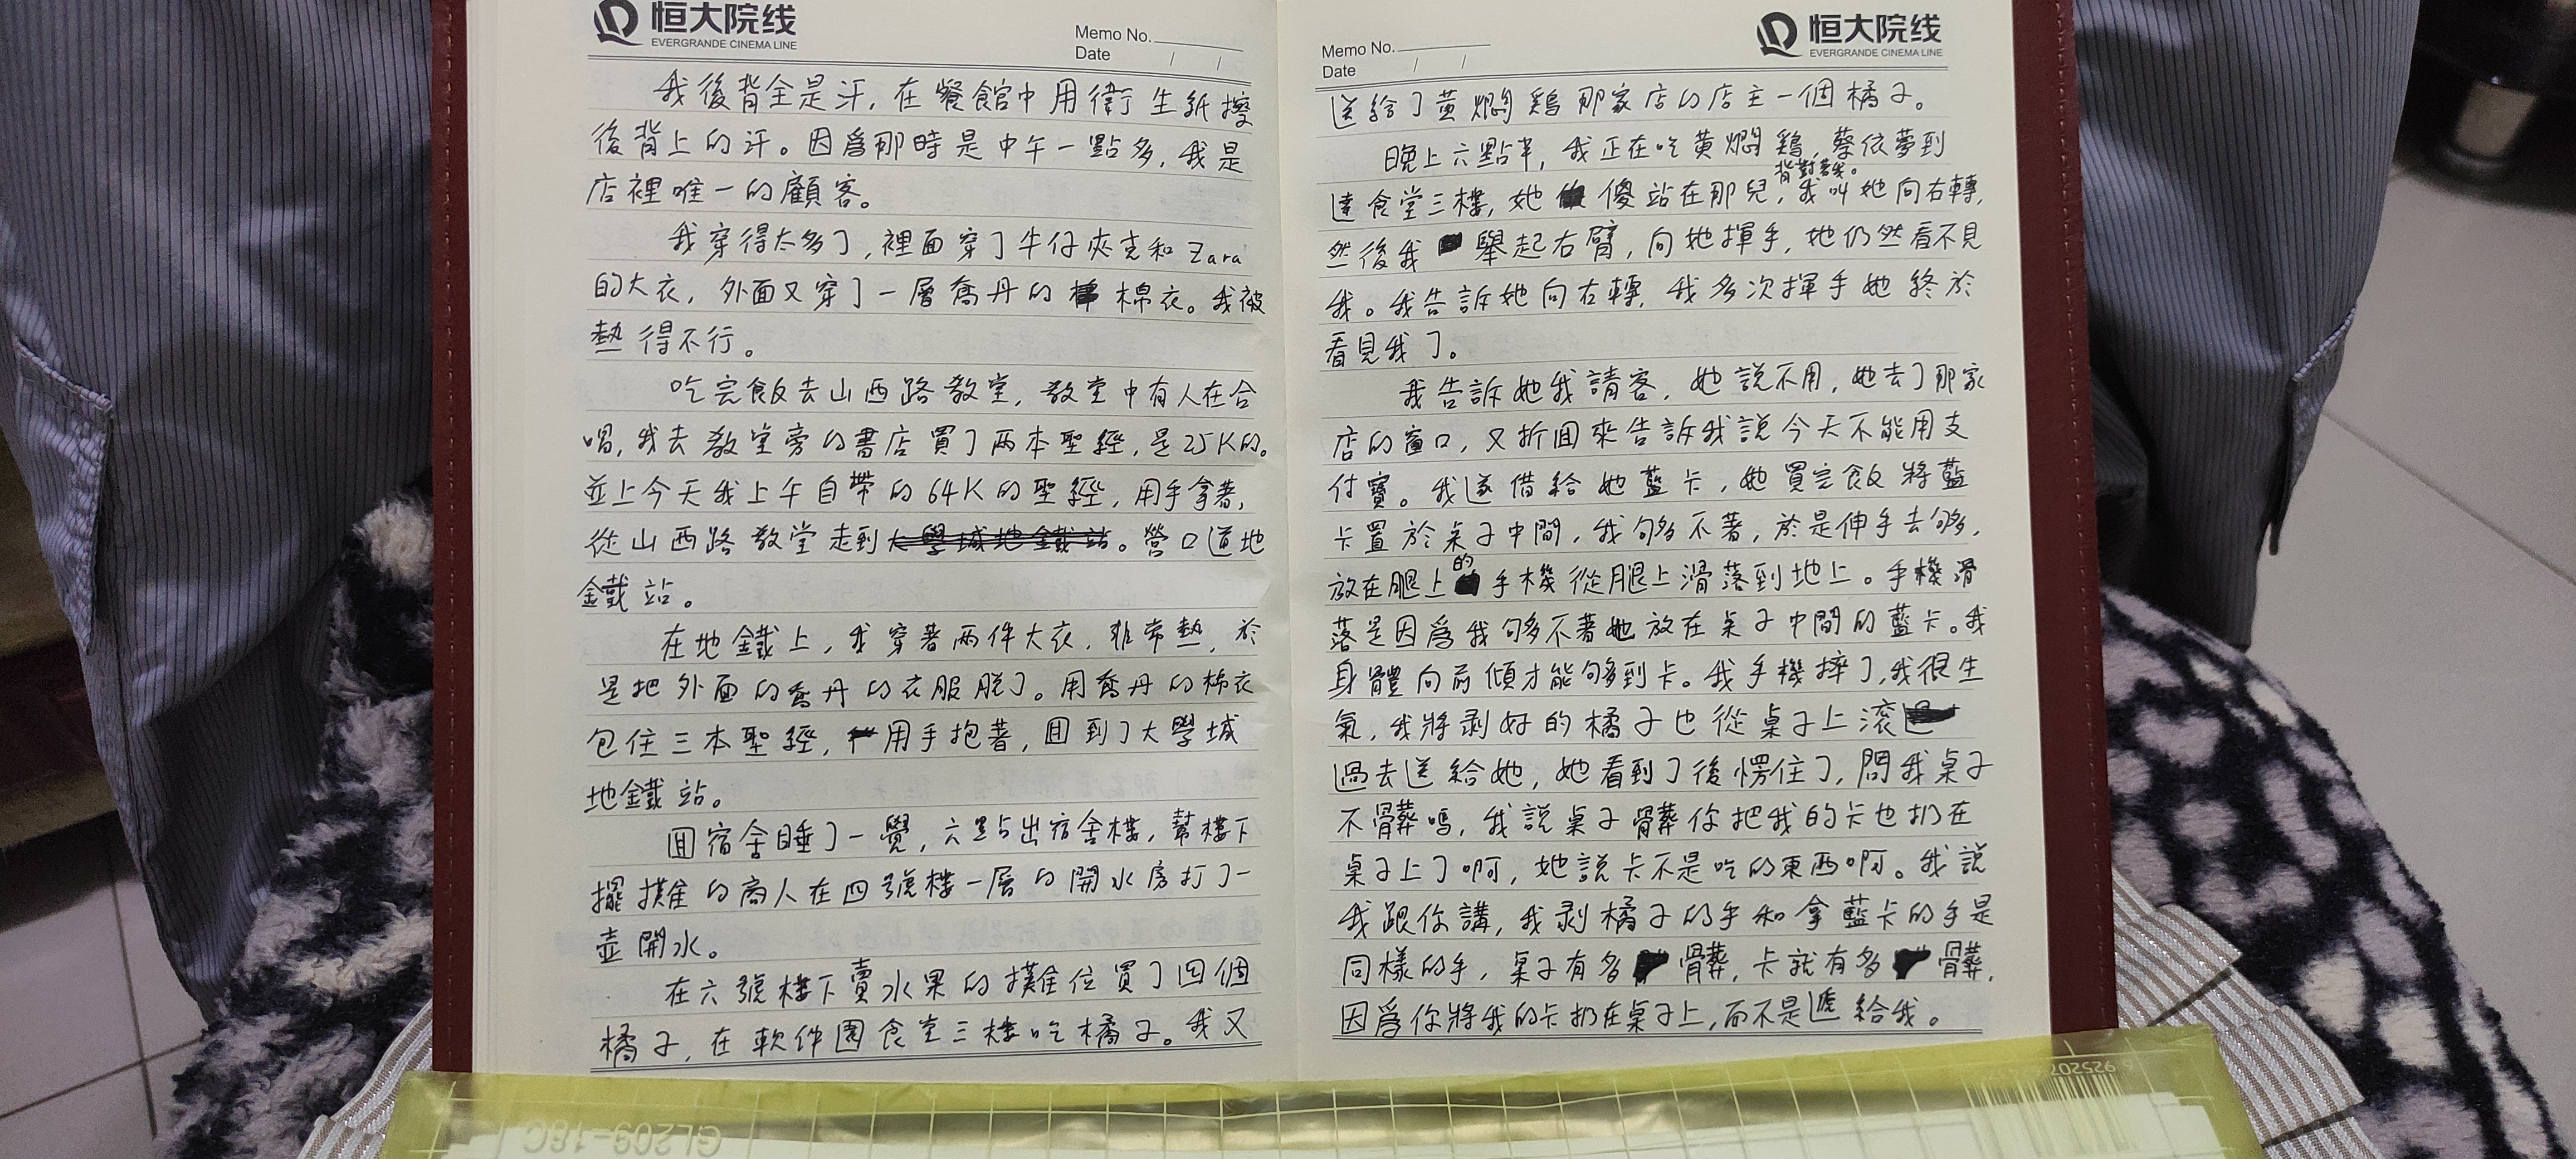 恒大院线
EVERGRANDE CINEMA LINE
Memo No.
Date / /
我後背全是汗,在餐館中用衛生紙擦
後背上的汗。因爲那時是中午一點多,我是
店裡唯一的顧客。
我穿得太多了,裡面穿了牛仔夾克和Zara
的大衣,外面又穿了一層喬丹的棉衣。我被
熱得不行。
吃完飯去山西路教堂,教堂中有人在合
唱,我去教堂旁的書店買了两本聖經,是25K的。
並上今天我上午自帶的64K的聖經,用手拿著,
從山西路教堂走到大學城地鐵站。營口道地
鐵站。
在地鐵上,我穿著两件大衣,非常熱,於
是把外面的喬丹的衣服脫了。用喬丹的棉衣
包住三本聖經,用手抱著,回到了大學城
地鐵站。
回宿舍睡了一覺,六點出宿舍樓,幫樓下
擺攤的商人在四號樓一層的開水房打了一
壺開水。
在六號樓下賣水果的攤位買了四個
橘子,在軟件園食堂三樓吃橘子。我又
恒大院线
EVERGRANDE CINEMA LINE
Memo No.
Date / /
送給了黄燜鷄那家店的店主一個橘子。
晚上六點半,我正在吃黄燜鷄,蔡依夢到
背對著我。
達食堂三樓,她傻站在那兒,我叫她向右轉,
然後我舉起右臂,向她揮手,她仍然看不見
我。我告訴她向右轉,我多次揮手她終於
看見我了。
我告訴她我請客,她説不用,她去了那家
店的窗口,又折回來告訴我說今天不能用支
付寶。我遂借給她藍卡,她買完飯將藍
卡置於桌子中間,我够不著,於是伸手去够,
放在腿上的手機從腿上滑落到地上。手機滑
落是因爲我够不著她放在桌子中間的藍卡。我
身體向前傾才能够到卡。我手機摔了,我很生
氣,我將剥好的橘子也從桌子上滚
過去送給她,她看到了後愣住了,問我桌子
不髒嗎,我説桌子髒你把我的卡也扔在
桌子上了啊,她説卡不是吃的東西啊。我説
我跟你講,我剥橘子的手和拿藍卡的手是
同樣的手,桌子有多髒,卡就有多髒,
因爲你將我的卡扔在桌子上,而不是遞給我。
GL209-18C